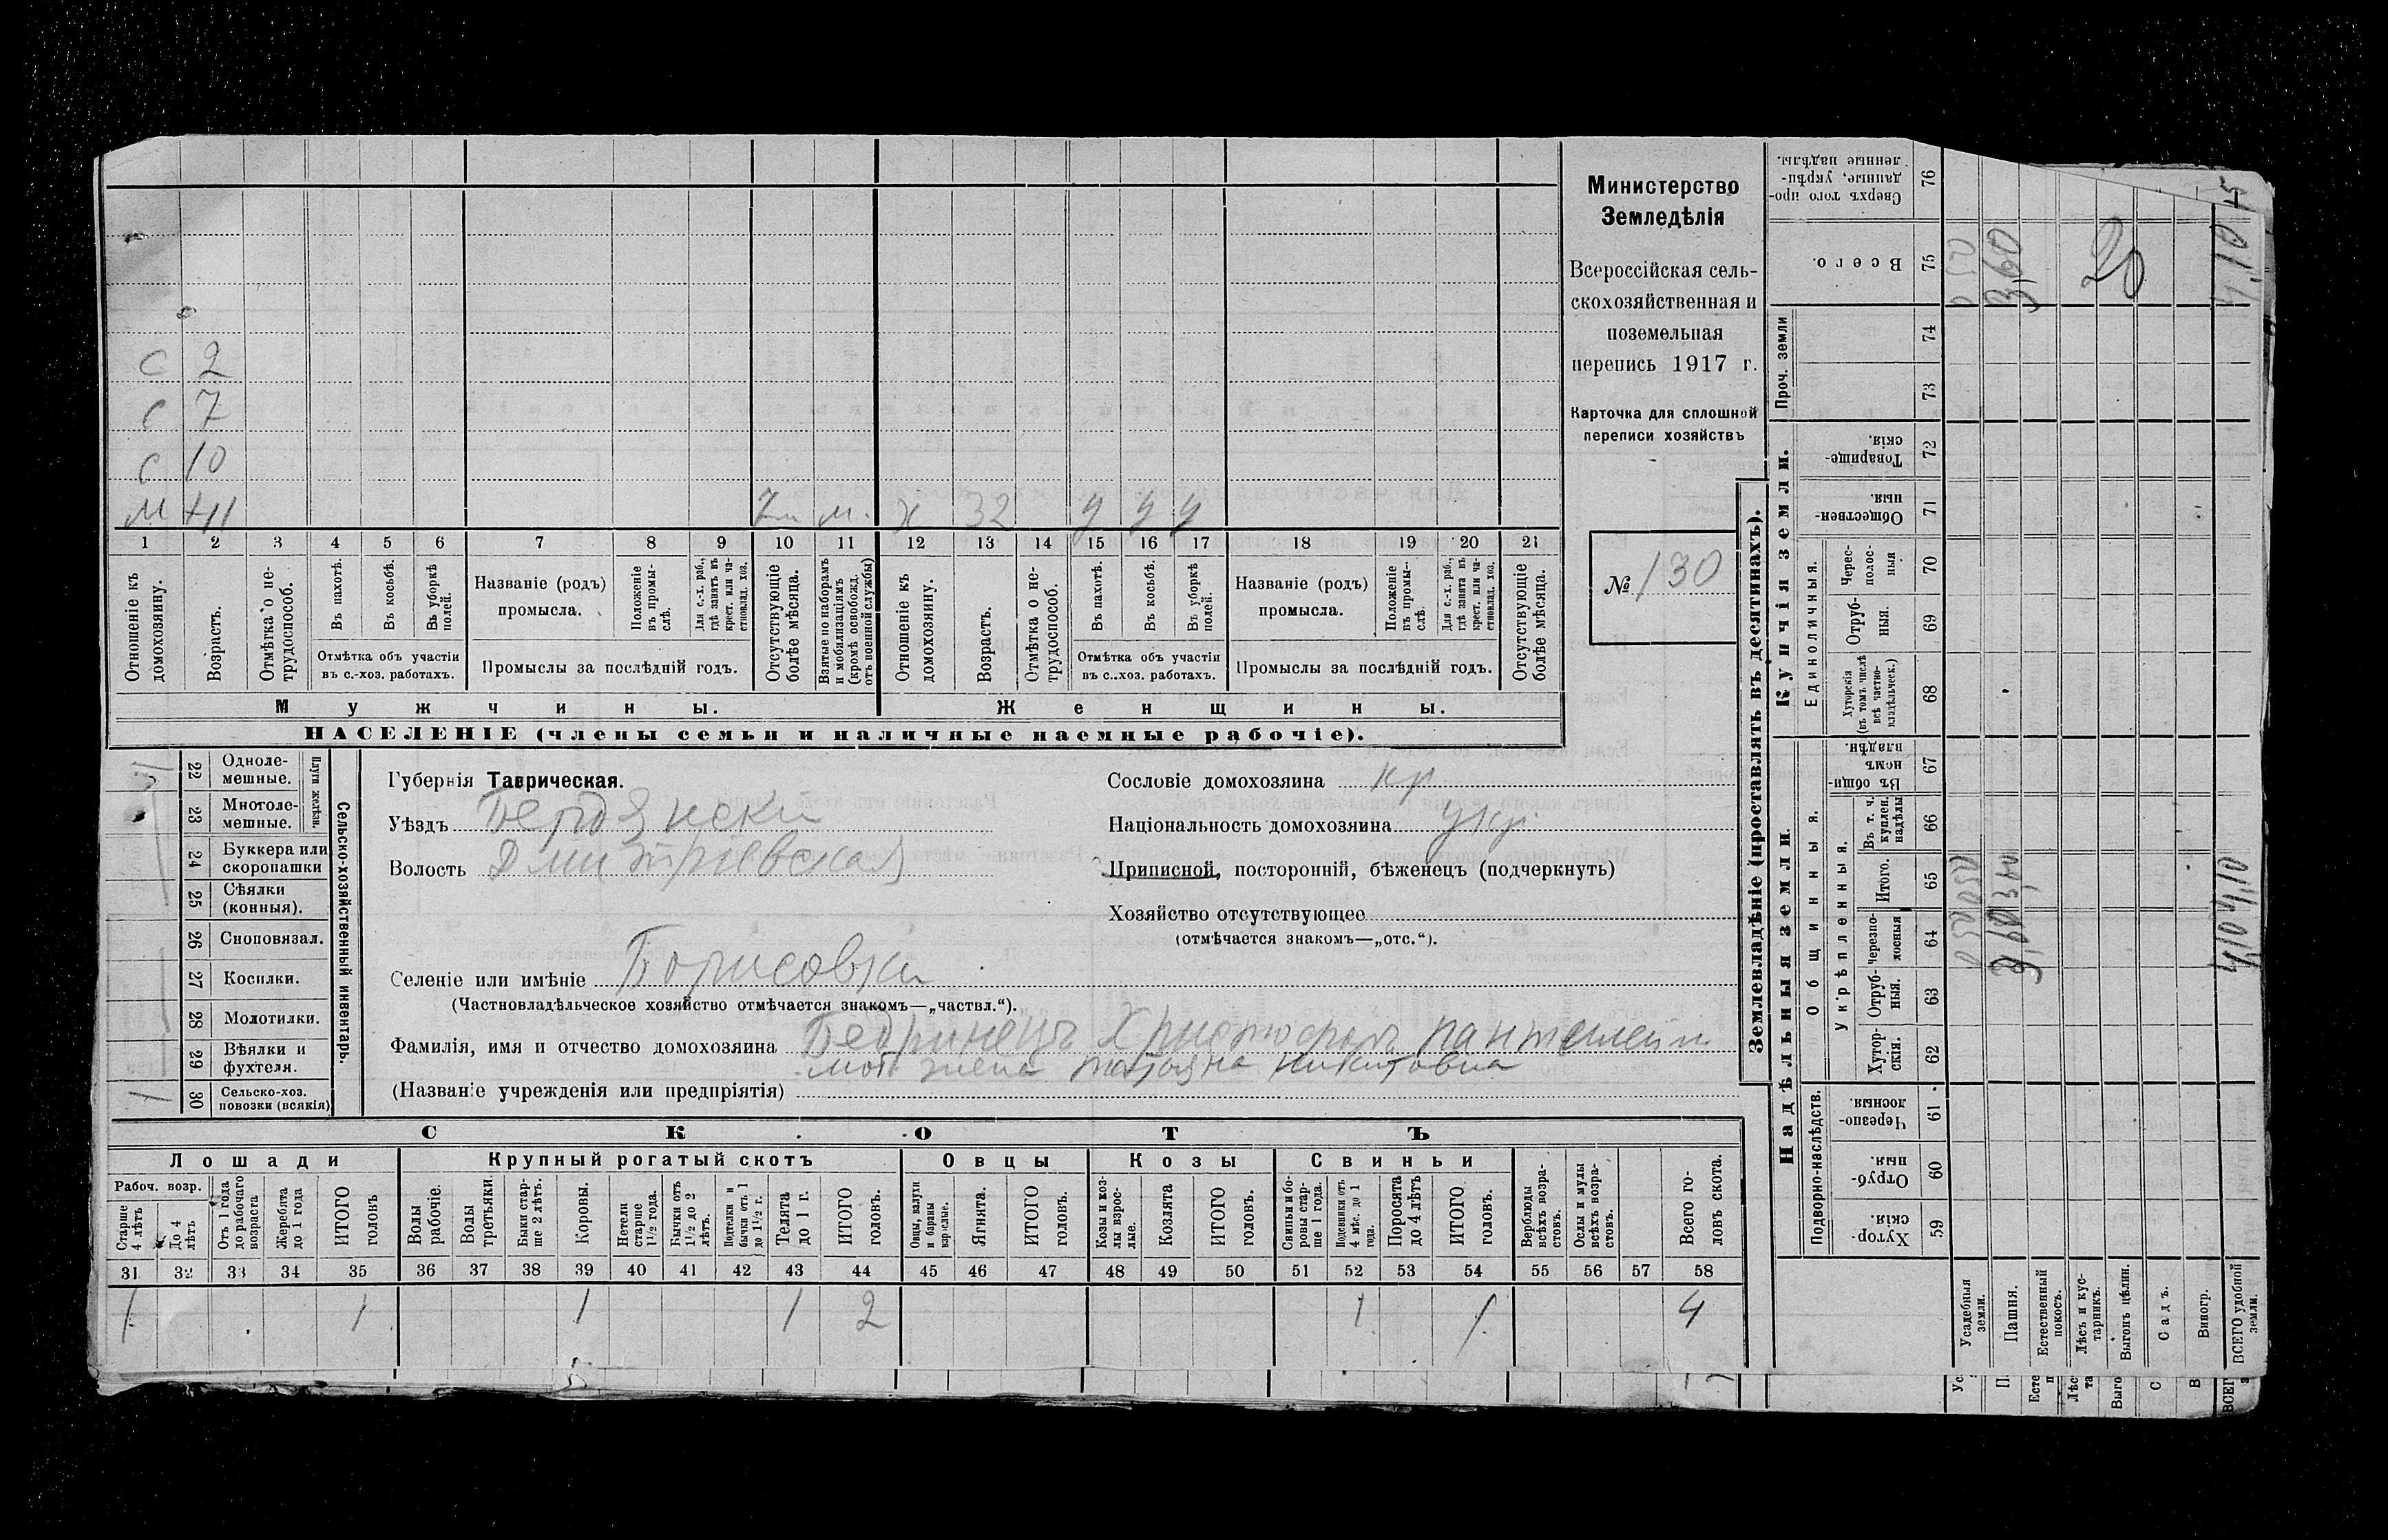 Министерство
Земледѣлія
Всероссійская сель-
скохозяйственная и
поземельная
перепись 1917 г.
Карточка для сплошной
переписи хозяйствъ
№ 130
С 2
С 7
С 10
М
7 м м. ж 32 у у у
1 2 3 4 5 6 7 8 9 10 11 12 13 14 15 16 17 18 19 20 21
Отношеніе къ домохозяину.
Возрастъ.
Отмѣтка о не-трудоспособ.
Въ пахотѣ.
Въ косьбѣ.
Въ уборкѣ полей.
Отмѣтка объ участіи
въ с.-хоз. работахъ.
Названіе (родъ)
промысла.
Положеніе въ промы-слѣ.
Для с.-х. раб., гдѣ занятъ въ крест. или ча-стновлад. хоз.
Промыслы за послѣдній годъ.
Отсутствующіе болѣе мѣсяца.
Взятые по наборамъ и мобилизаціямъ (кромѣ освобожд. отъ военной службы)
Отношеніе къ домохозяину.
Возрастъ.
Отмѣтка о не-трудоспособ.
Въ пахотѣ.
Въ косьбѣ.
Въ уборкѣ полей.
Отмѣтка объ участіи
въ с.-хоз. работахъ.
Названіе (родъ)
промысла.
Положеніе въ промы-слѣ.
Для с.-х. раб., гдѣ занята въ крест. или ча-стновлад. хоз.
Промыслы за послѣдній годъ.
Отсутствующіе болѣе мѣсяца.
Мужчины.
Женщины.
НАСЕЛЕНІЕ (члены семьи и наличные наемные рабочіе).
22 Одноле-мешные.
23 Многоле-мешные.
Плуги желѣзн.
24 Буккера или скоропашки
25 Сѣялки (конныя).
26 Сноповязал.
27 Косилки.
28 Молотилки.
29 Вѣялки и фухтеля.
1 30 Сельско-хоз. повозки (всякія)
Сельско-хозяйственный инвентарь.
Губернія Таврическая.
Уѣздъ Бердянскій
Волость Дмитріевская
Селеніе или имѣніе Борисовка
(Частновладѣльческое хозяйство отмѣчается знакомъ—„частвл.“).
Фамилія, имя и отчество домохозяина Бедринецъ Христофоръ Пантелейм
моб. жена Татьяна Никитовна
(Названіе учрежденія или предпріятія)
Сословіе домохозяина кр
Національность домохозяина укр.
Приписной, посторонній, бѣженецъ (подчеркнуть)
Хозяйство отсутствующее
(отмѣчается знакомъ—„отс.“).
СКОТЪ
Лошади Крупный рогатый скотъ Овцы Козы Свиньи
Рабоч. возр.
Старше 4 лѣтъ
До 4 лѣтъ
Отъ 1 года до рабочаго возраста
Жеребята до 1 года
ИТОГО головъ
Волы рабочіе.
Волы третьяки.
Быки стар-ше 2 лѣтъ.
Коровы.
Нетели старше 1½ года.
Бычки отъ 1½ до 2 лѣтъ.
Подтелки и бычки отъ 1 до 1½ г.
Телята до 1 г.
ИТОГО головъ.
Овцы, валухи и бараны взрослые.
Ягнята.
ИТОГО головъ.
Козы и коз-лы взрос-лые.
Козлята
ИТОГО головъ.
Свиньи и бо-ровы стар-ше 1 года.
Подсвинки отъ 4 мѣс. до 1 года.
Поросята до 4 лѣтъ
ИТОГО головъ.
Верблюды всѣхъ возра-стовъ.
Ослы и мулы всѣхъ возра-стовъ.
Всего го-ловъ скота.
31 32 33 34 35 36 37 38 39 40 41 42 43 44 45 46 47 48 49 50 51 52 53 54 55 56 57 58
1 1 1 1 2 1 1 4
Землевладѣніе (проставлять въ десятинахъ).
Надѣльныя земли.
Купчія земли.
Проч. земли
Подворно-наслѣдств.
Общинныя.
Укрѣпленныя.
Единоличныя.
Хутор-скія. 59
Отруб-ныя. 60
Черезпо-лосныя. 61
Хутор-скія. 62
Отруб-ныя. 63
Черезпо-лосныя 64
Итого. 65
Въ т. ч. куплен. надѣлы 66
Въ общи-номъ владѣн. 67
Хуторскія (въ томъ числѣ всѣ частно-владѣльческ.) 68
Отруб-ныя. 69
Черес-полос-ныя 70
Обществен-ныя. 71
Товарище-скія. 72
73
74
Всего. 75
Сверхъ того про-данные, укрѣп-ленные надѣлы. 76
Усадебныя земли. 0,50 0,50 0,50
Пашня. 3,60 3,60 3,60
Естественный покосъ.
Лѣсъ и кус-тарникъ.
Выгонъ цѣлин.
Садъ.
Виногр.
ВСЕГО удобной земли. 4,10 4,10 4,10
20